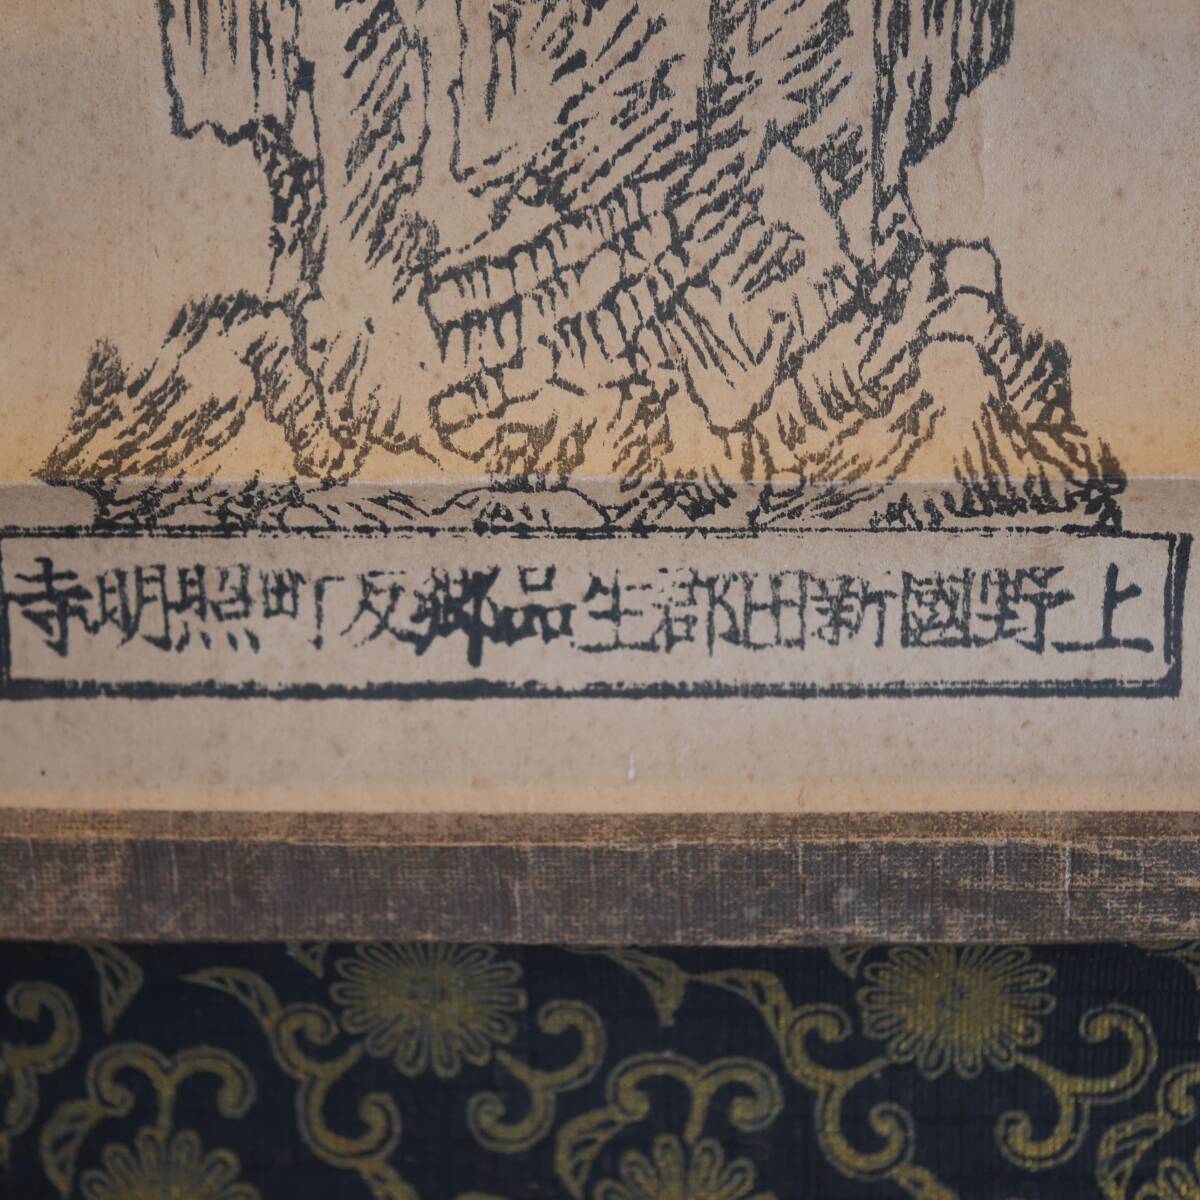 上野國新田郡生品鄉反町照明寺